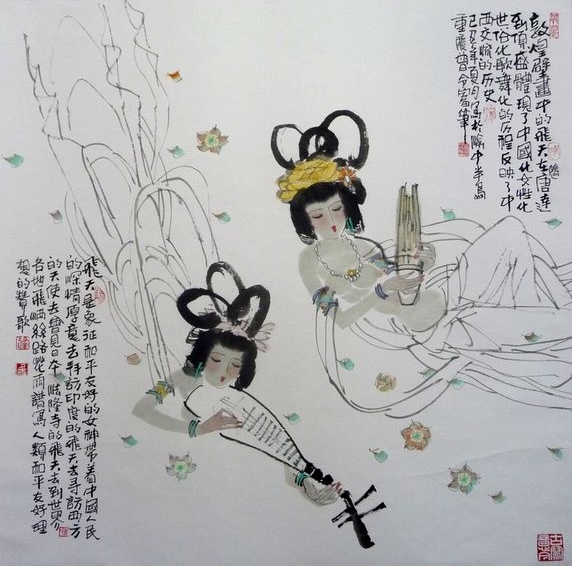 敦煌壁畫中的飛天在唐達
到頂盛體現了中國化女性化
世俗化歌舞化的历程反映了中
西交流的历史
己丑年夏月寫於渝中半島
重慶曾令富筆
飛天是象征和平友好的女神帶着中國人民
的深情厚意去拜訪印度的飛天去尋訪西方
的天使去會見日本法隆寺的飛天去到世界
各地飛洒絲路花雨譜寫人類和平友好理
想的贊歌